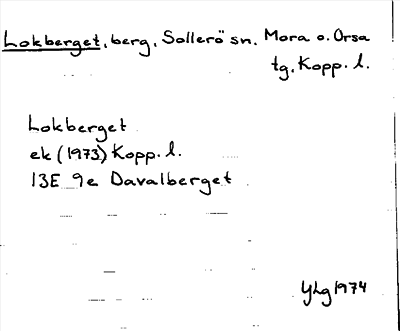 Lokberget, berg, Sollerö sn. Mora o. Orsa
tg. Kopp. l.
Lokberget
ek (1973) Kopp. l.
13E 9e Davalberget
YLg 1974